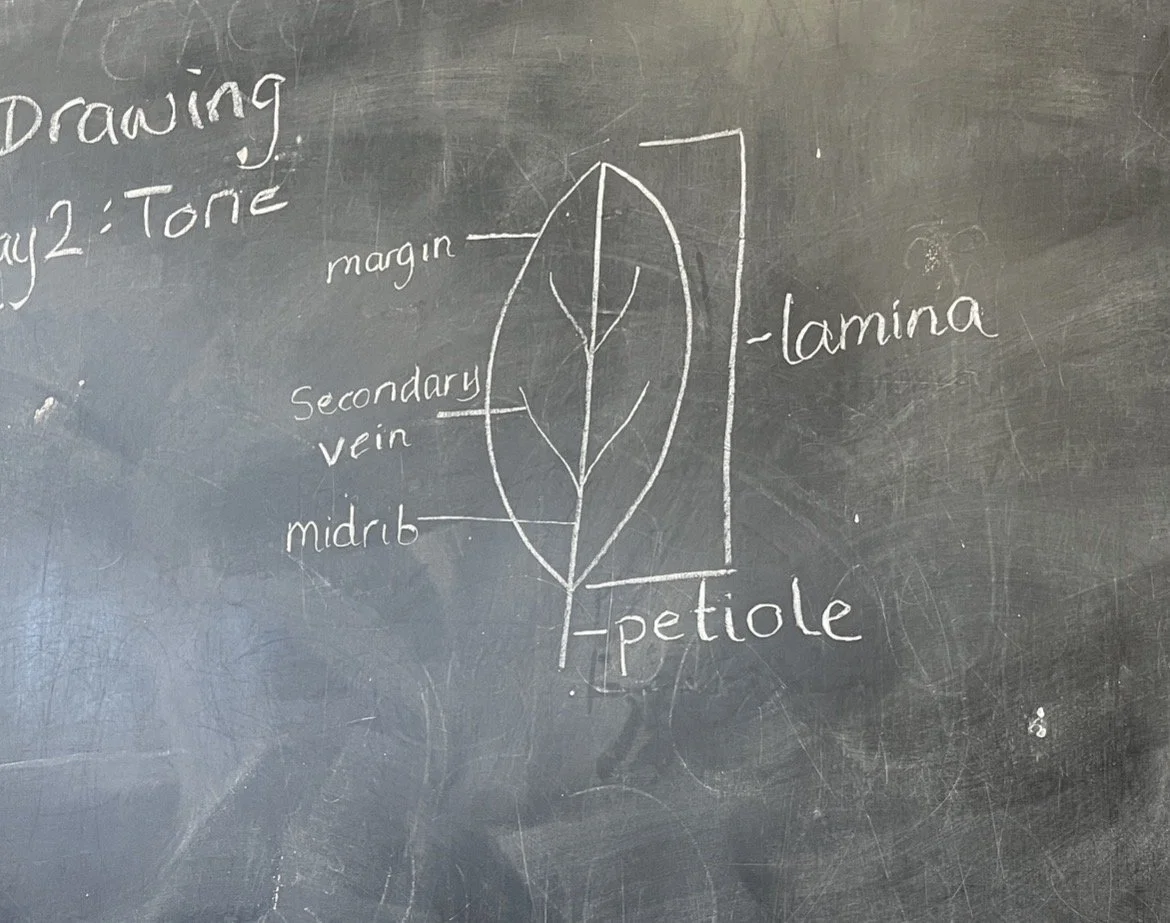 Drawing
ay2: Tone
margin
-lamina
Secondary
vein
midrib
-petiole